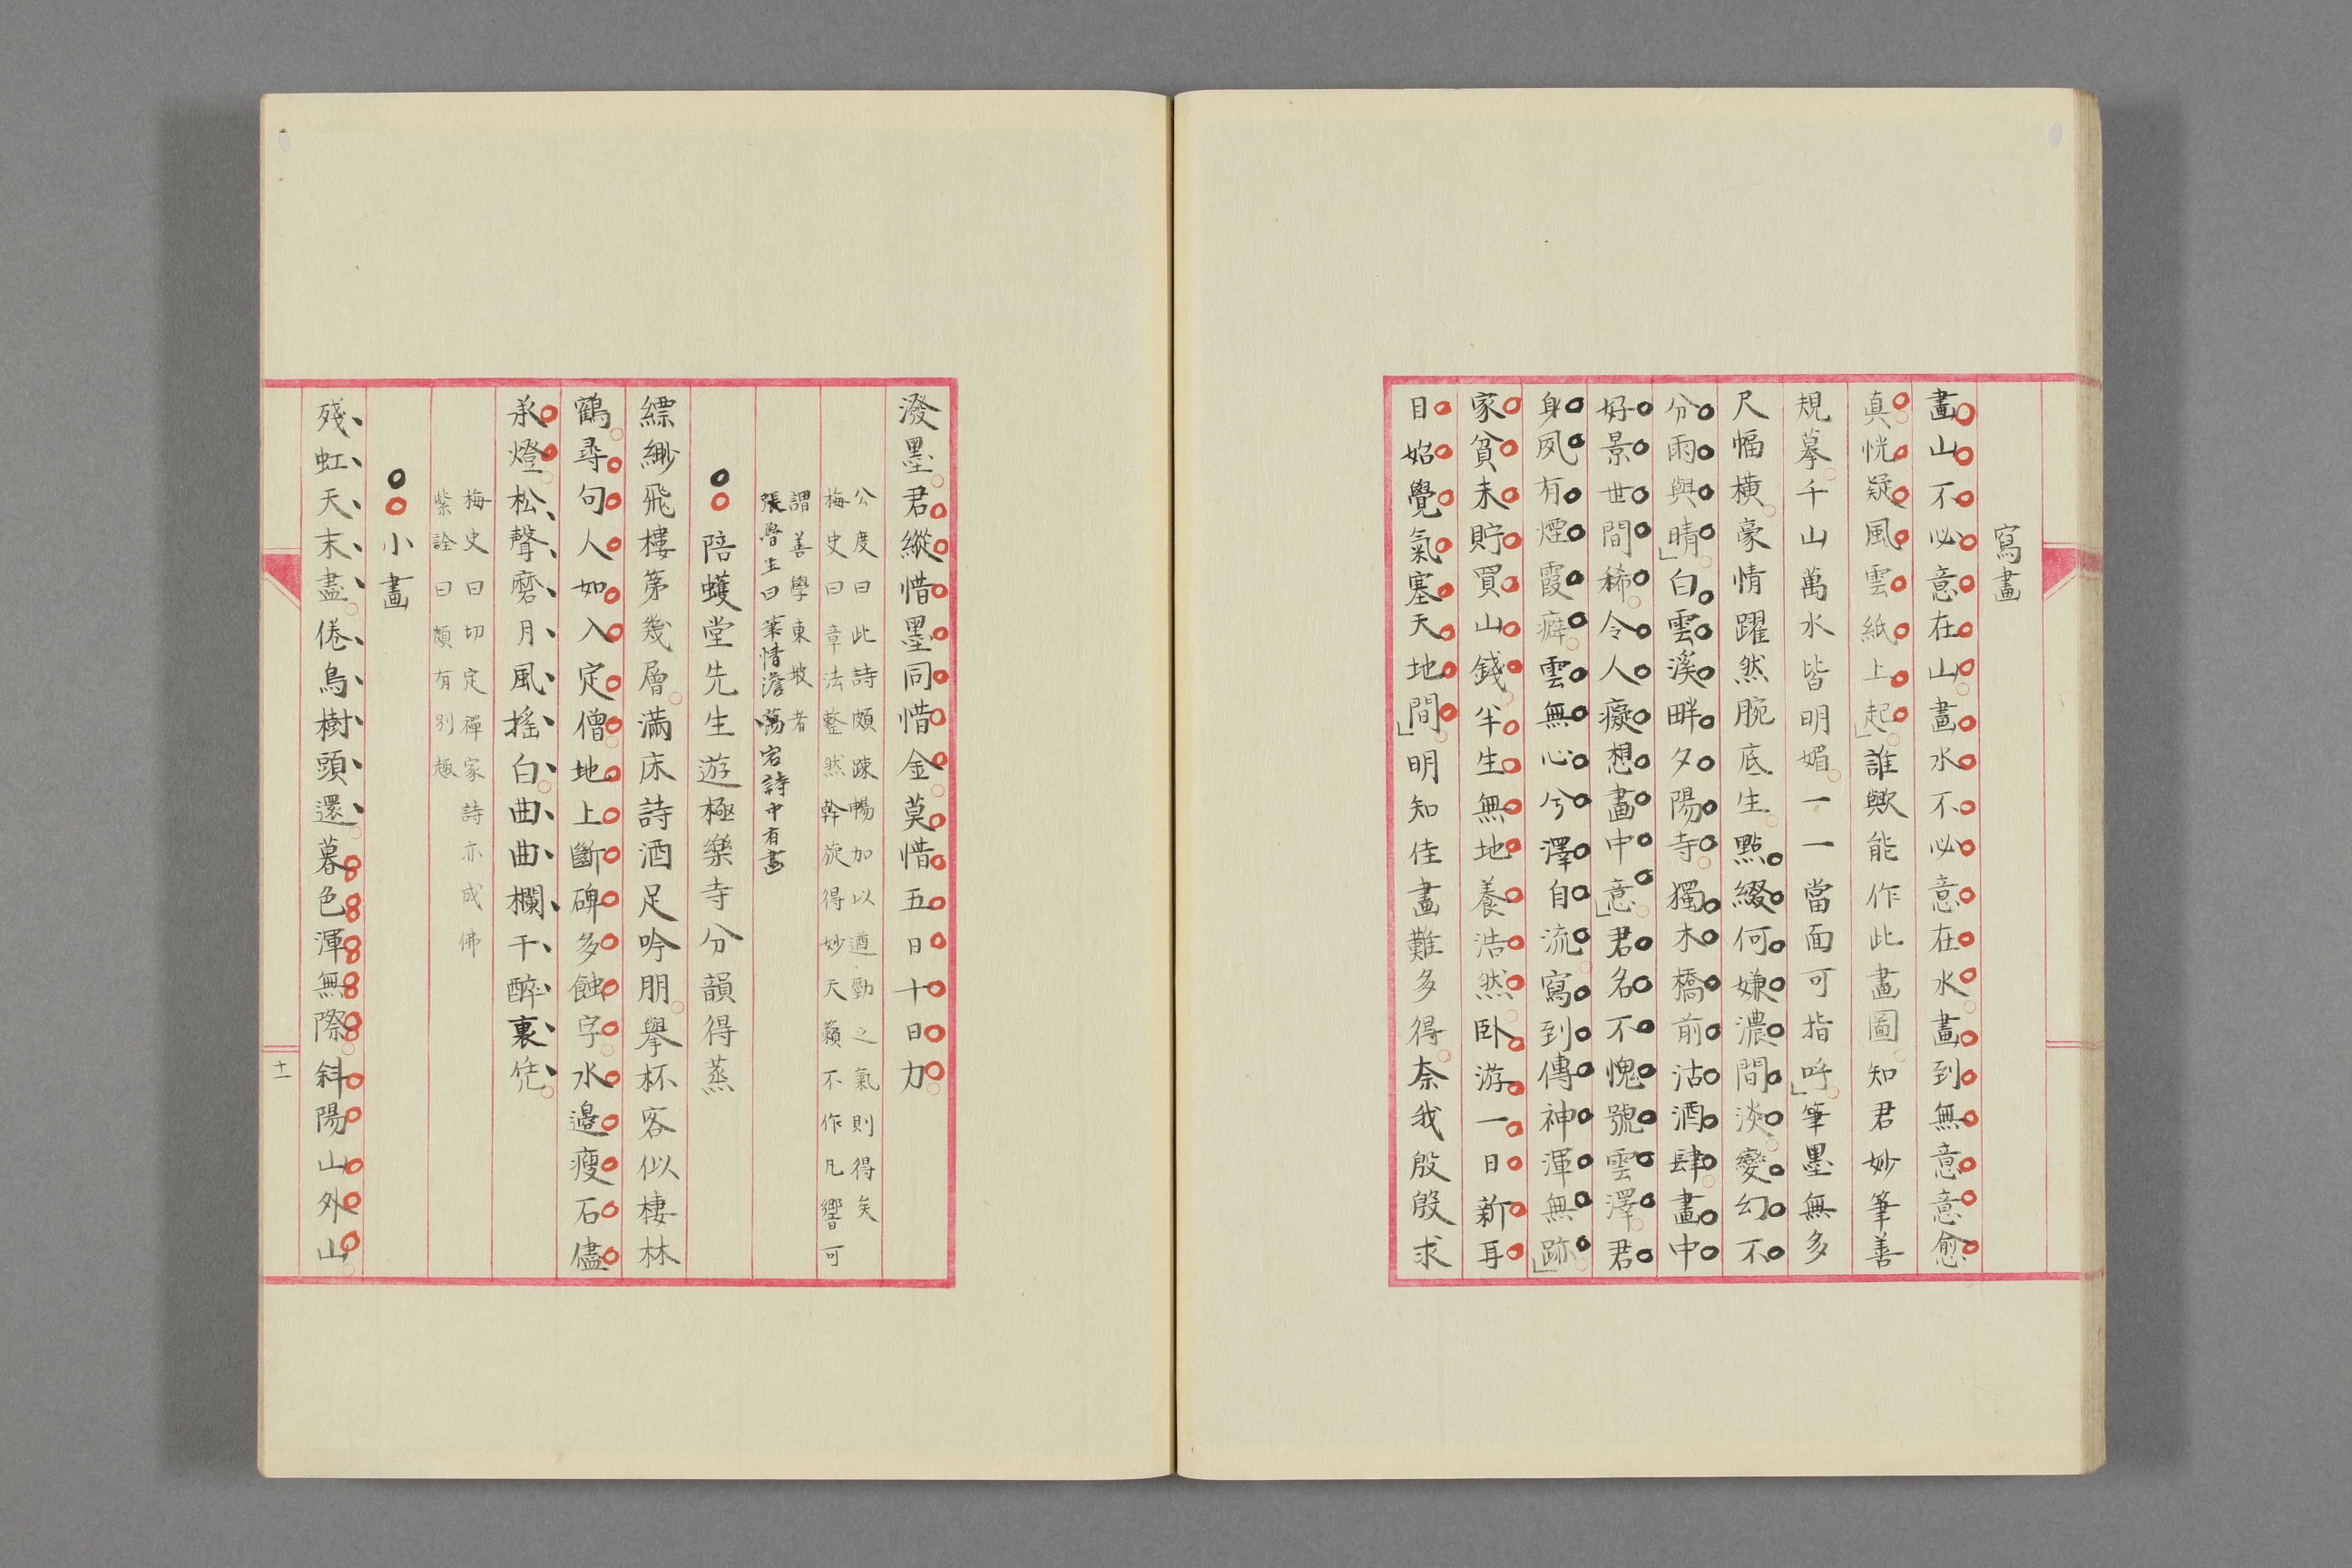 寫畫
畫山不必意在山畫水不必意在水畫到無意意愈
真恍疑風雲紙上起」誰歟能作此畫圖知君妙筆善
規摹千山萬水皆明媚一一當面可指呼」筆墨無多
尺幅橫豪情躍然腕底生點綴何嫌濃間淡變幻不
分雨與晴」白雲溪畔夕陽寺獨木橋前沽酒肆畫中
好景世間稀令人癡想畫中意」君名不愧號雲澤君
身夙有煙霞癖雲無心兮澤自流寫到傳神渾無跡」
家貧未貯買山錢半生無地養浩然臥游一日新耳
目始覺氣塞天地間」明知佳畫難多得奈我殷殷求
潑墨君縱惜墨同惜金莫惜五日十日力
公度曰此詩頗疎暢加以遒勁之氣則得矣
梅史曰章法整然斡旋得妙天籟不作凡響可
謂善學東坡者
張魯生曰筆情澹蕩宕詩中有畫
陪蠖堂先生遊極樂寺分韻得蒸
縹緲飛樓第幾層滿床詩酒足吟朋擧杯客似棲林
鶴尋句人如入定僧地上斷碑多蝕字水邊瘦石儘
承燈松聲磨月風搖白曲曲欄干醉裏凭
梅史曰切定禪家詩亦成佛
紫詮曰頗有別趣
小畫
殘虹天末盡倦鳥樹頭還暮色渾無際斜陽山外山
十一